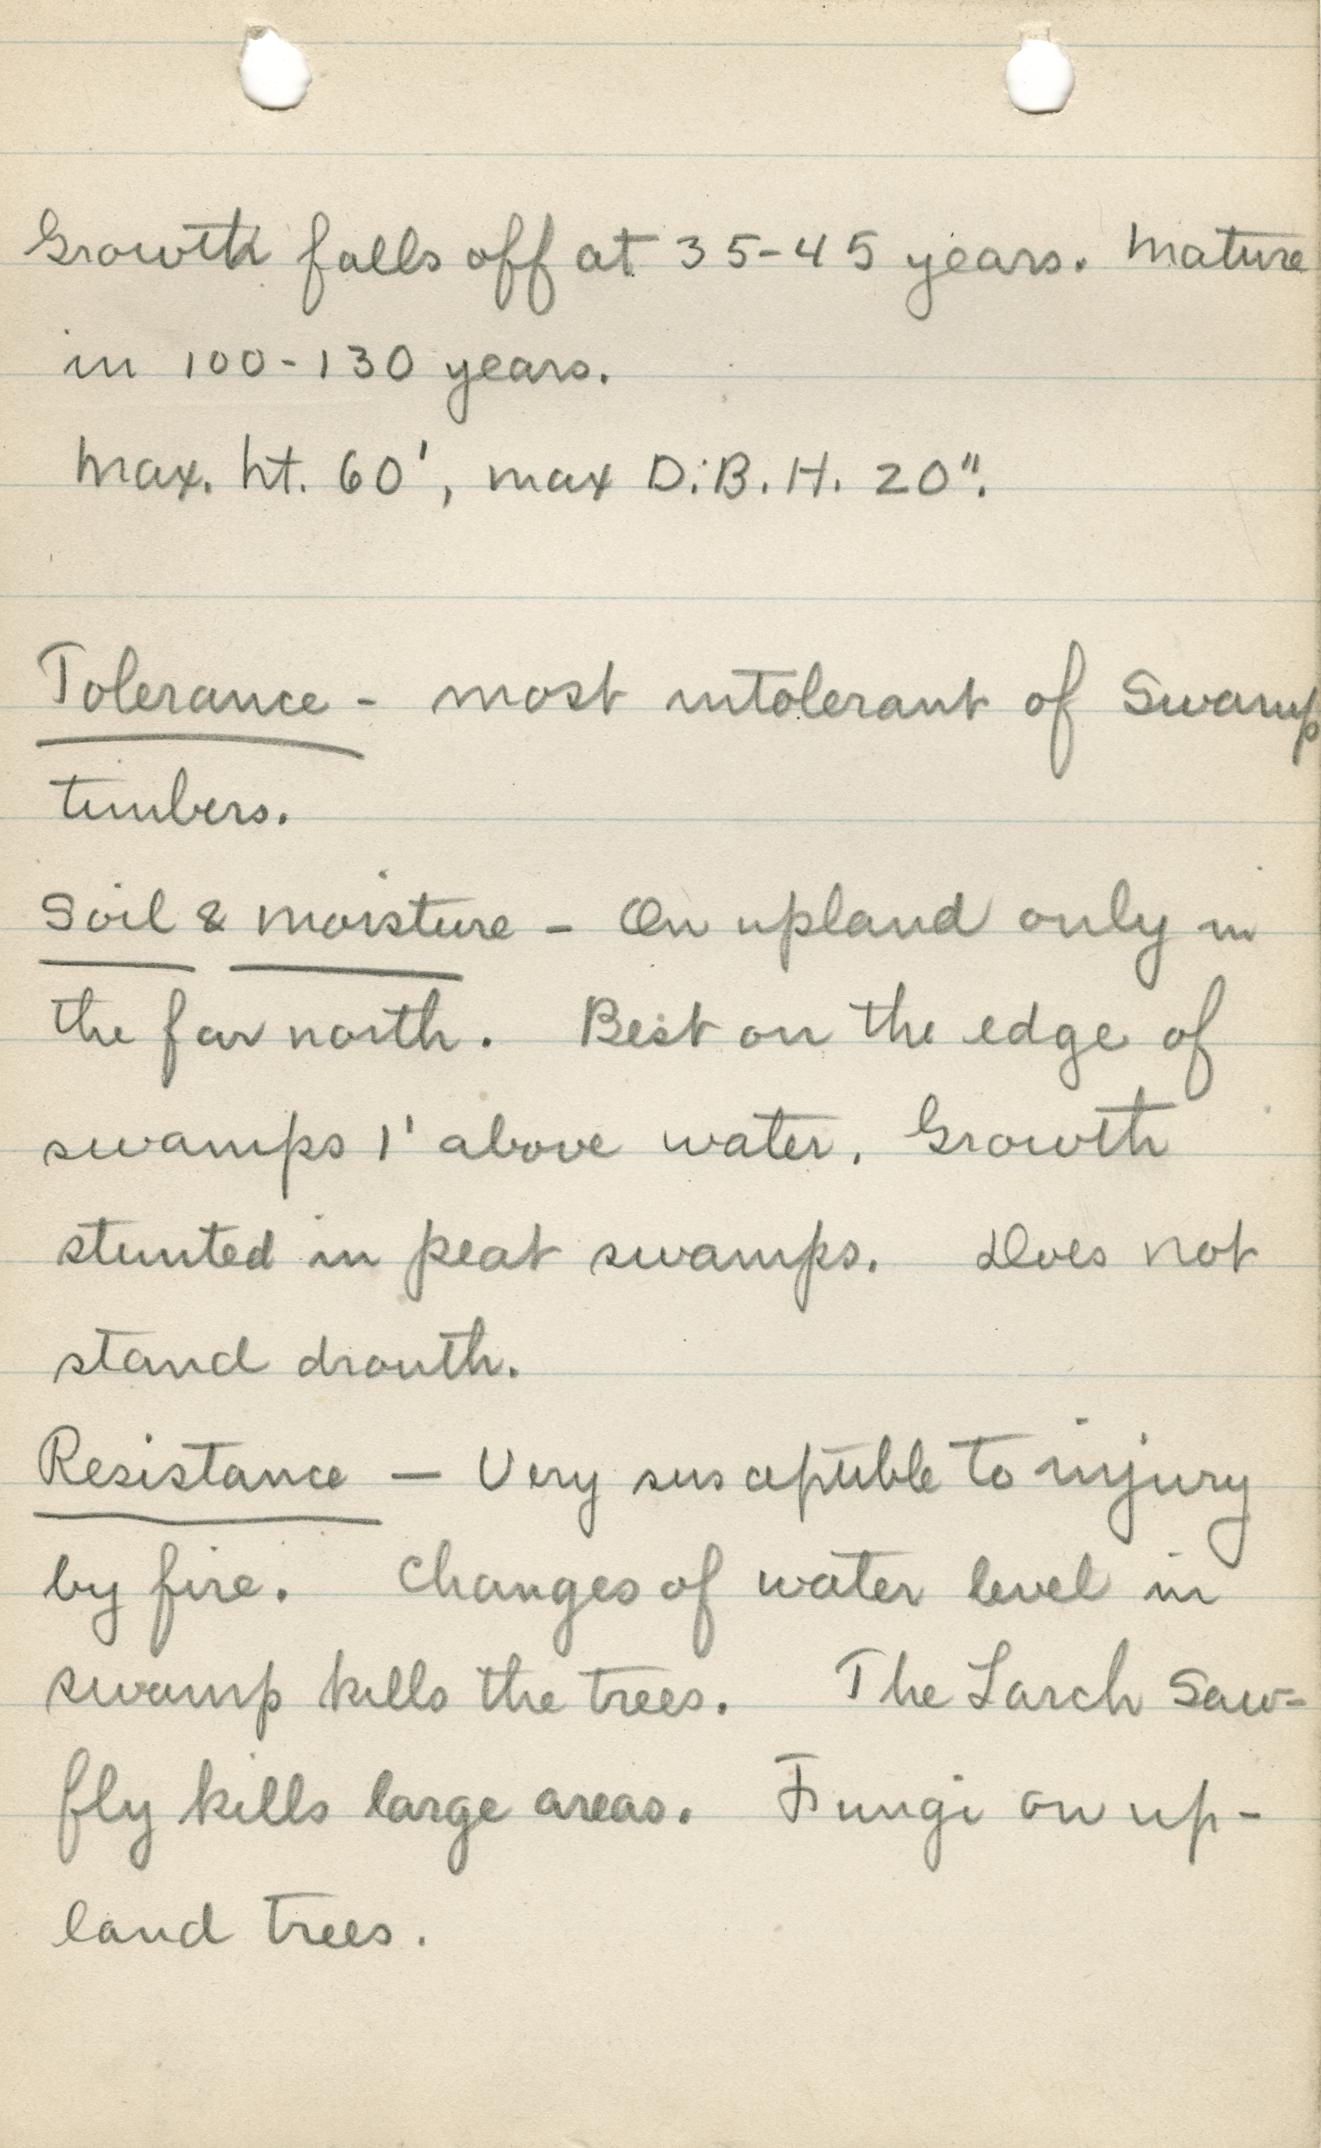 Growth falls off at 35-45 years. Mature
in 100-130 years.
Max. ht. 60', max D.B.H. 20".
Tolerance - most intolerant of Swamp
timbers.
Soil & Moisture - On upland only in
the far north. Best on the edge of
swamps 1' above water. Growth
stunted in peat swamps. Does not
stand drouth.
Resistance — Very susceptible to injury
by fire. Changes of water level in
swamp kills the trees. The Larch Saw-
fly kills large areas. Fungi on up-
land trees.